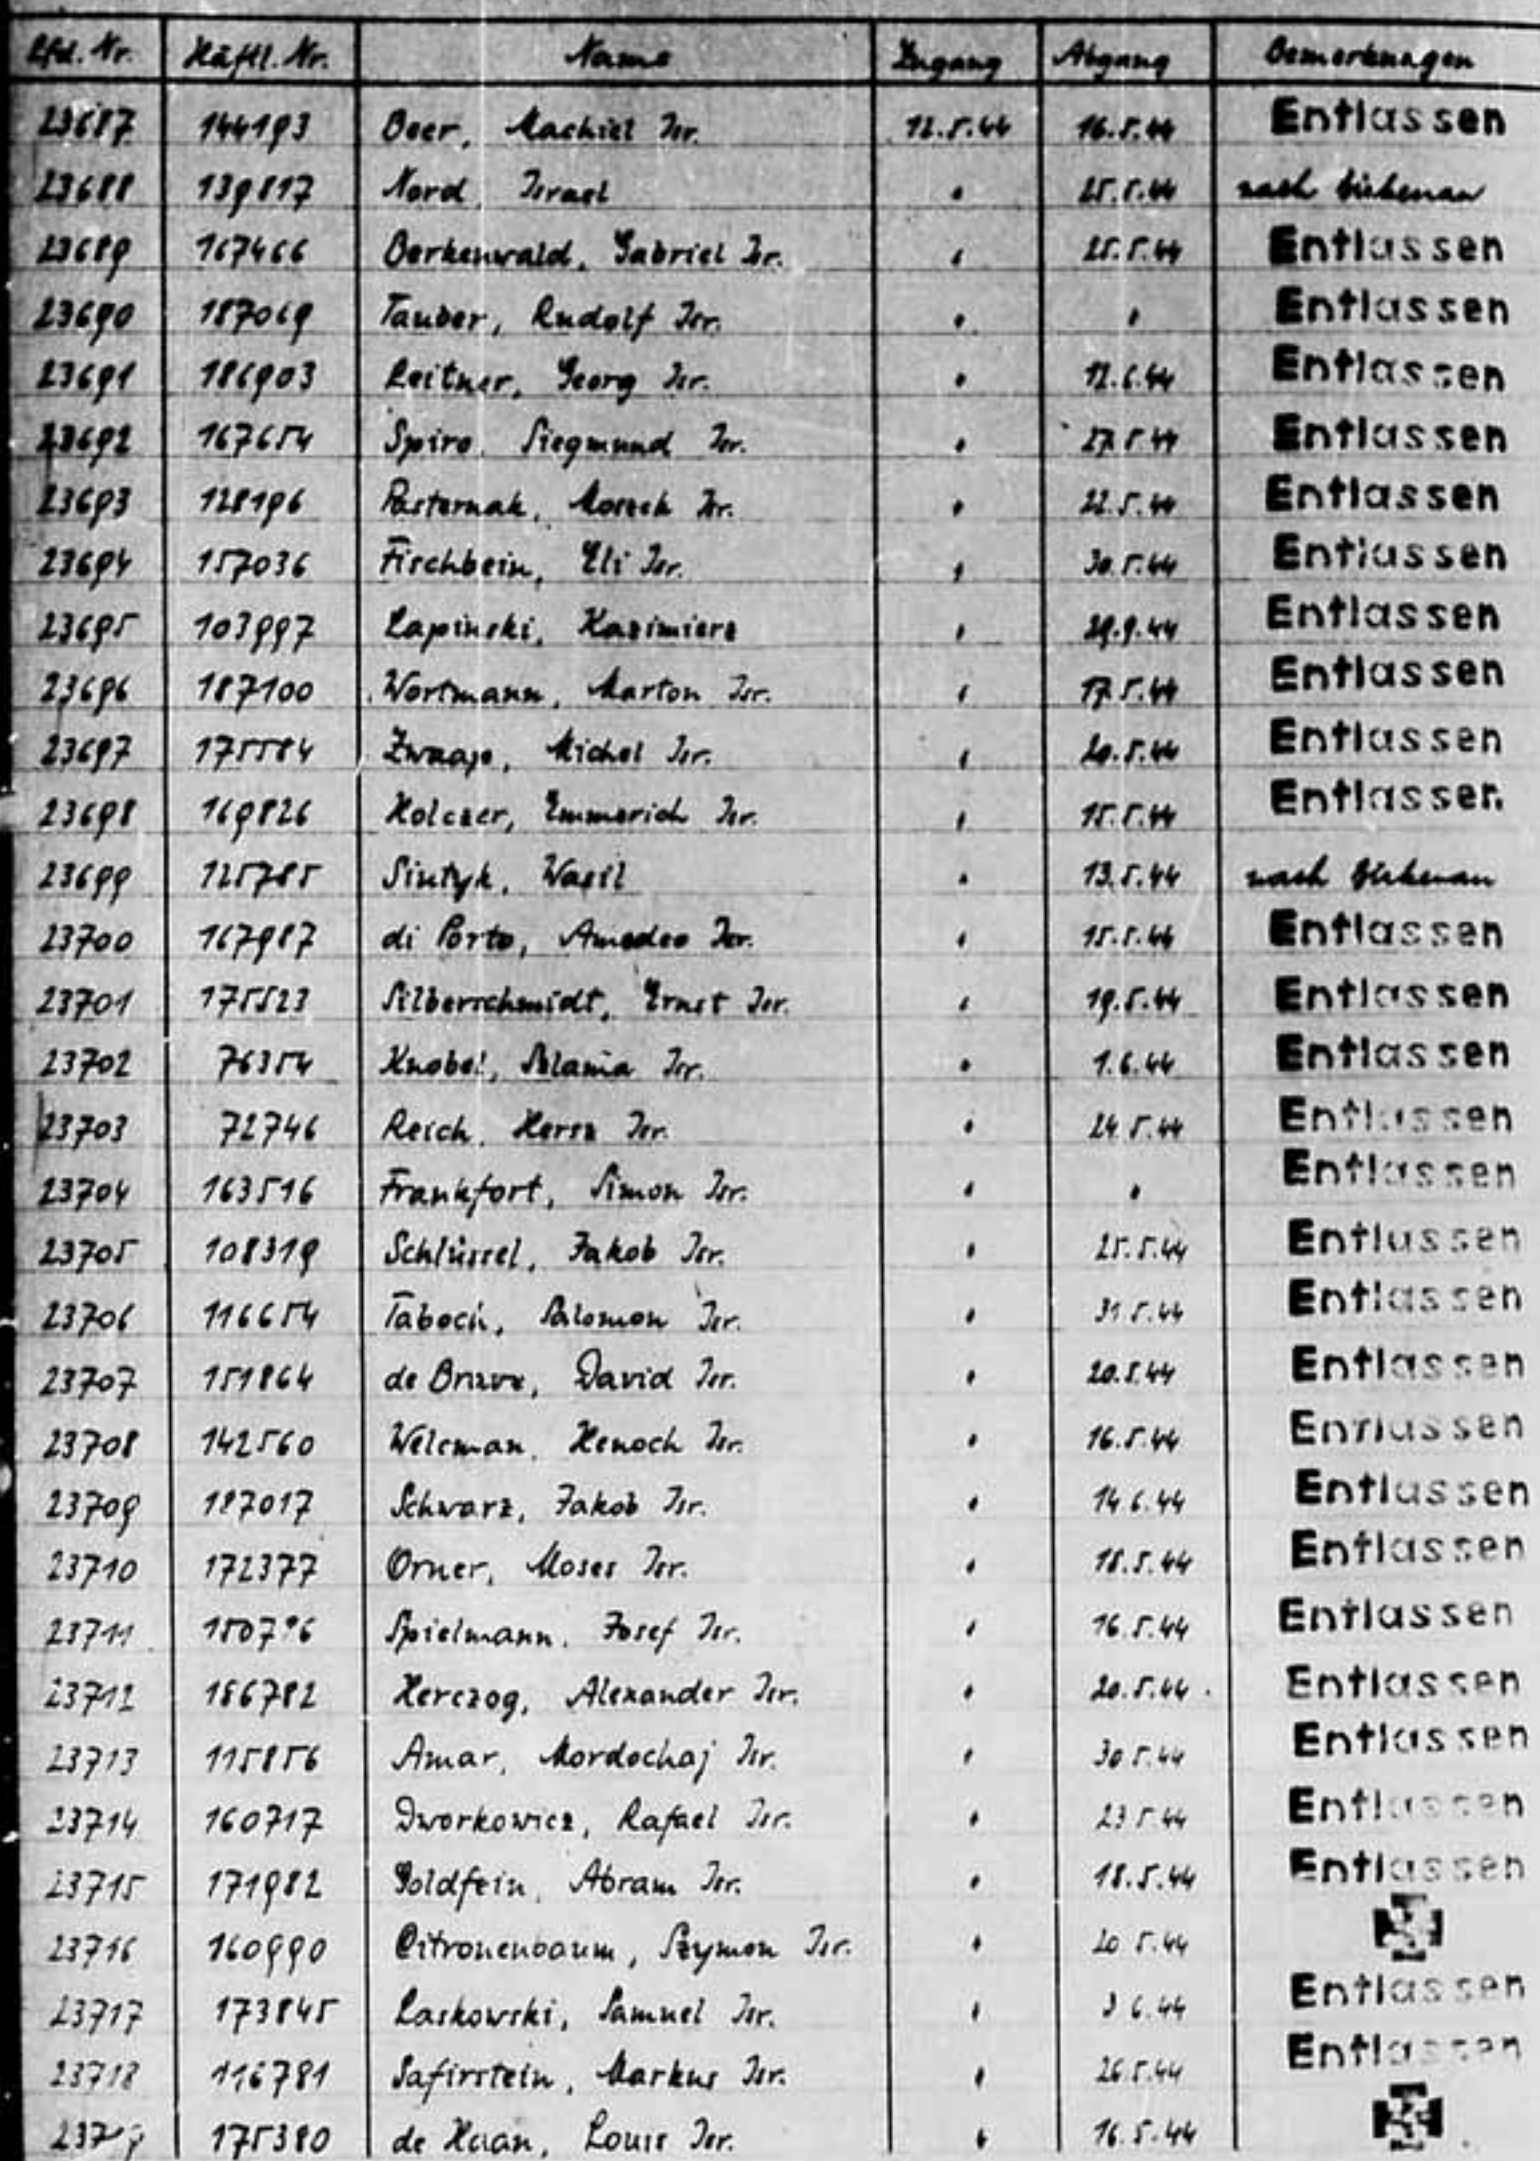 Lfd. Nr. Häftl. Nr. Name Zugang Abgang Bemerkungen
23687 144193 Beer, Machiel Isr. 12.5.44 16.5.44 Entlassen
23688 139817 Nord, Israel " 25.5.44 nach Birkenau
23689 167466 Berkenwald, Gabriel Isr. " 25.5.44 Entlassen
23690 187069 Tauber, Rudolf Isr. " " Entlassen
23691 186903 Reitner, Georg Isr. " 12.6.44 Entlassen
23692 167654 Spiro, Siegmund Isr. " 27.5.44 Entlassen
23693 128196 Pasternak, Moszek Isr. " 22.5.44 Entlassen
23694 157036 Fischbein, Eli Isr. " 30.5.44 Entlassen
23695 103997 Lapinski, Kazimierz " 29.9.44 Entlassen
23696 187100 Wortmann, Marton Isr. " 17.5.44 Entlassen
23697 175584 Zwaap, Michel Isr. " 20.5.44 Entlassen
23698 169826 Holczer, Emmerich Isr. " 15.5.44 Entlassen
23699 125785 Sintyk, Wasil " 13.5.44 nach Birkenau
23700 167987 di Porto, Amadeo Isr. " 15.5.44 Entlassen
23701 175523 Silberschmidt, Ernst Isr. " 19.5.44 Entlassen
23702 76354 Knobel, Isr. " 1.6.44 Entlassen
23703 72746 Reich, Hersz Isr. " 24.5.44 Entlassen
23704 163516 Frankfort, Simon Isr. " " Entlassen
23705 108319 Schlüssel, Jakob Isr. " 25.5.44 Entlassen
23706 116654 Taboch, Salomon Isr. " 31.5.44 Entlassen
23707 151864 de David Isr. " 20.5.44 Entlassen
23708 142560 Welcman, Henoch Isr. " 16.5.44 Entlassen
23709 187017 Schwarz, Jakob Isr. " 14.6.44 Entlassen
23710 172377 Orner, Moses Isr. " 18.5.44 Entlassen
23711 Spielmann, Josef Isr. " 16.5.44 Entlassen
23712 186782 Herczog, Alexander Isr. " 20.5.44 Entlassen
23713 115856 Amar, Mordochaj Isr. " 30.5.44 Entlassen
23714 160717 Dworkowicz, Rafael Isr. " 23.5.44 Entlassen
23715 171982 Goldfein, Abram Isr. " 18.5.44 Entlassen
23716 160990 Citronenbaum, Szymon Isr. " 20.5.44
23717 173845 Laskowski, Samuel Isr. " 3.6.44 Entlassen
23718 116781 Safirstein, Markus Isr. " 26.5.44 Entlassen
23719 175380 de Haan, Louis Isr. " 16.5.44